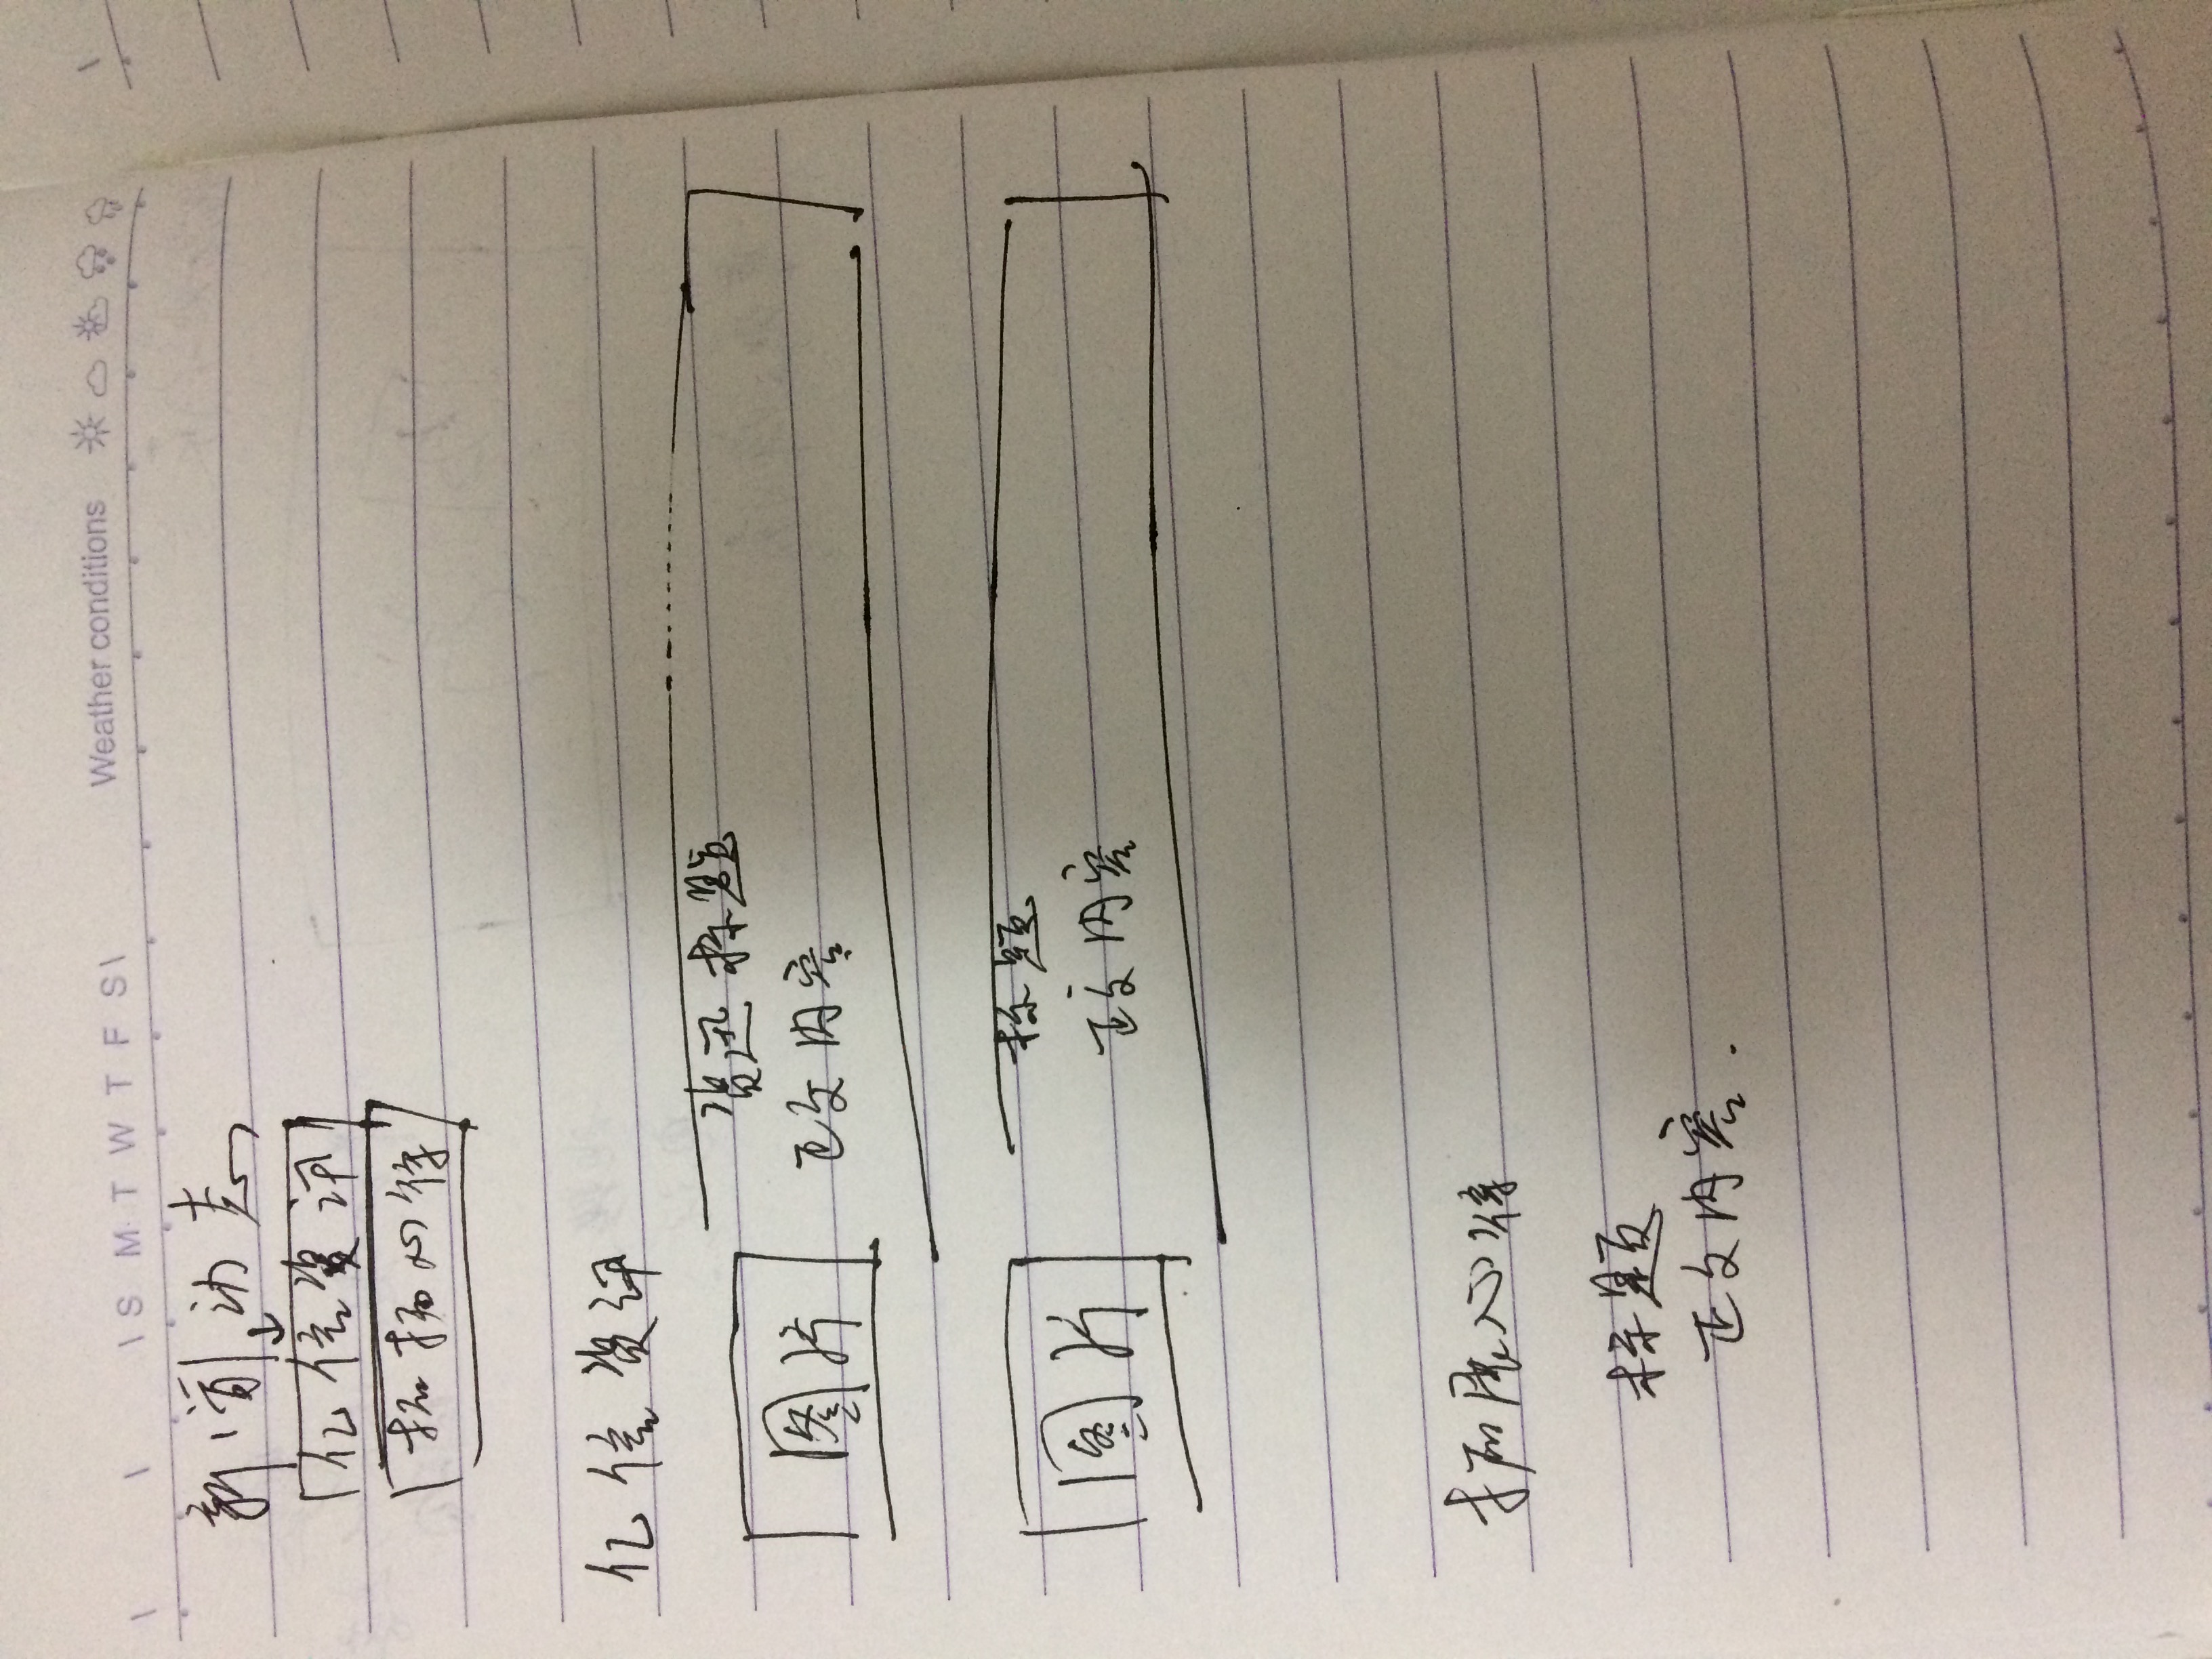 S M T W T F S Weather conditions
新闻动态
亿信资讯
拓扬心得
亿信资讯
资迅标题
图片 正文内容
标题
图片 正文内容
拓展心得
标题
正文内容.